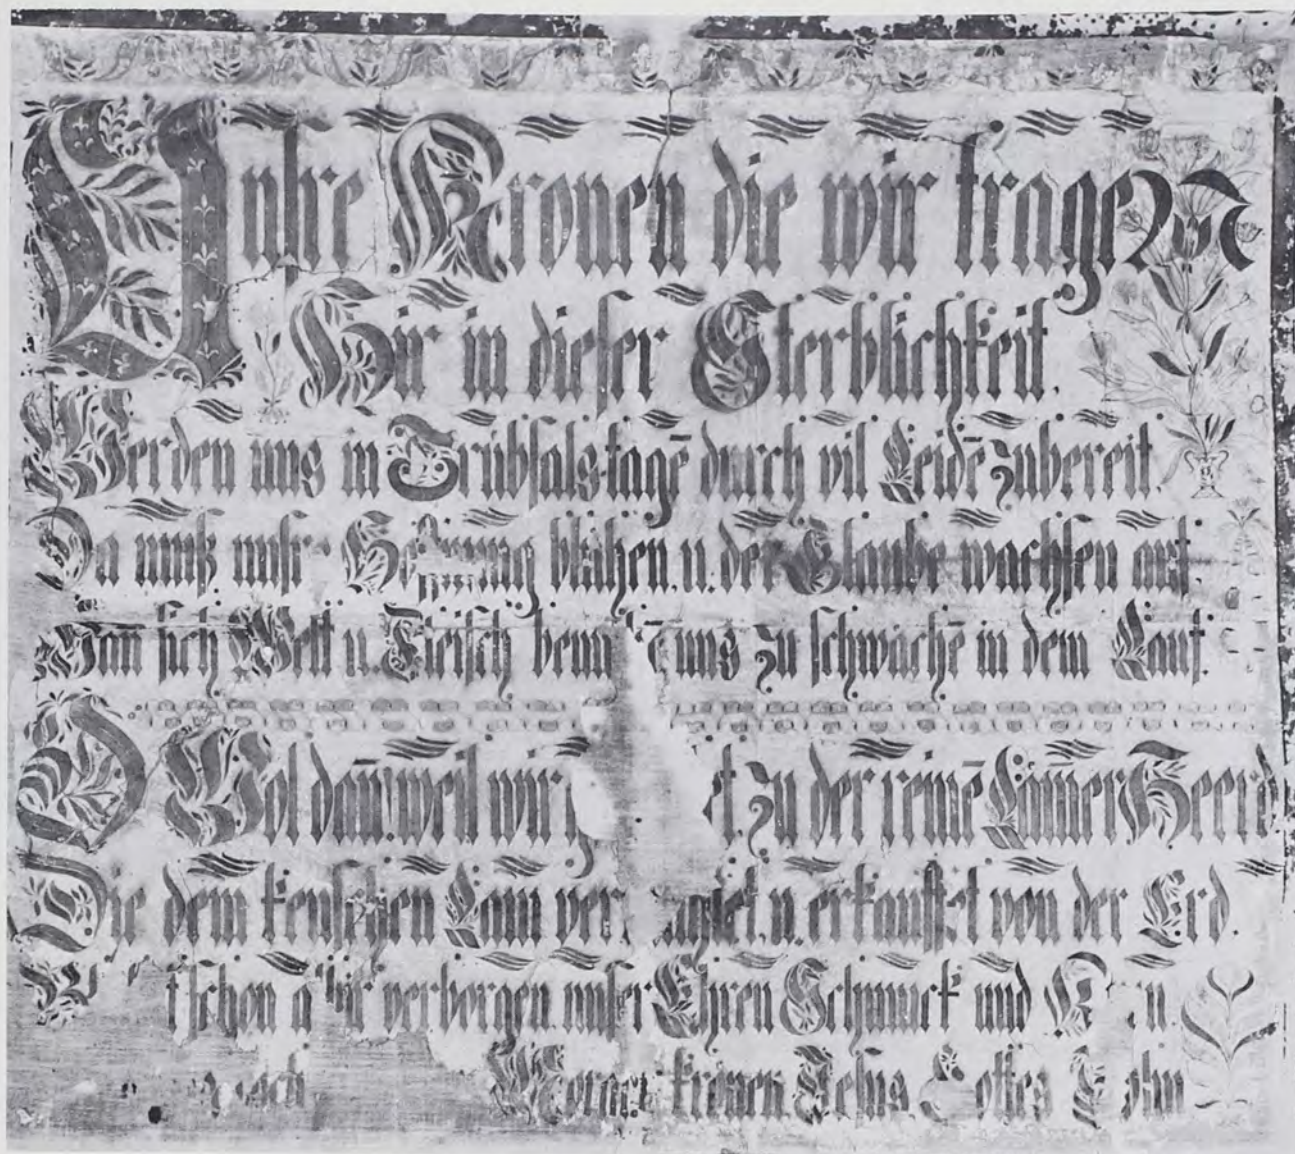 Unsre Kronen die wir tragen
Hir in dieser Sterblichkeit.
Werden uns in Trübsals-tagē durch vil Leidē zubereit.
Da muß unsre Hoffnung blühen. u. der Glaube wachsen auf.
Wan sich Welt u. Fleisch uns zu schwächē in dem Lauf.
O Wol dañ! weil wir zu der reinē Lām̄er Heerd
Die dem keuschen Lam̄ u. erkauffet von der Erd.
schon verborgen unser Ehren Schmuck und
krönen Jesus, Gottes Sohn